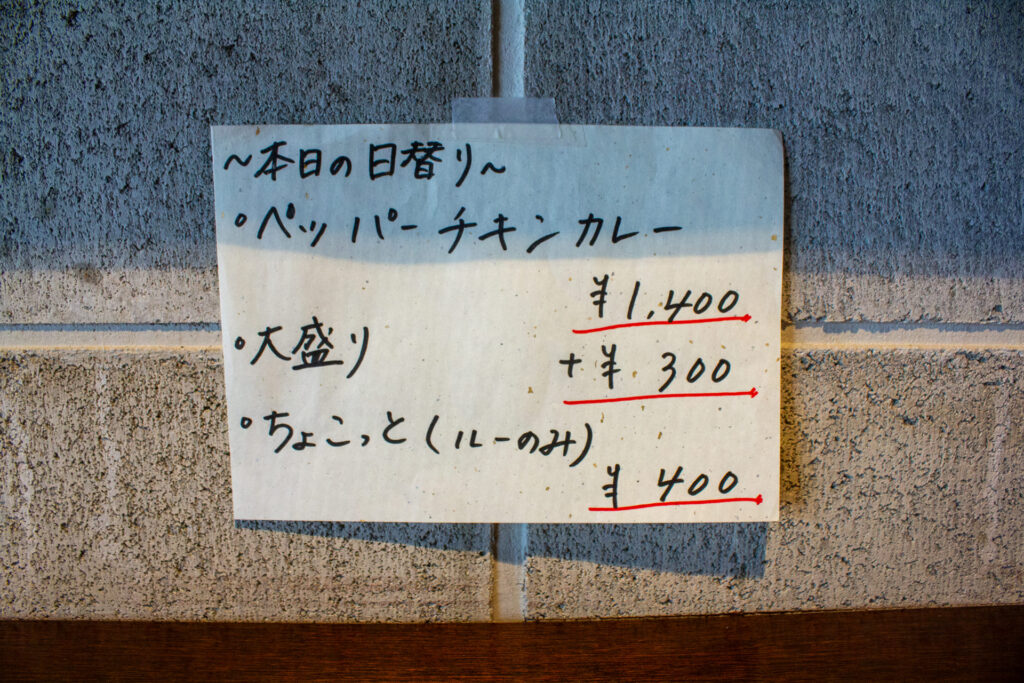 ～本日の日替り～
・ペッパーチキンカレー
¥1,400
・大盛り +¥300
・ちょこっと(ルーのみ)
¥400